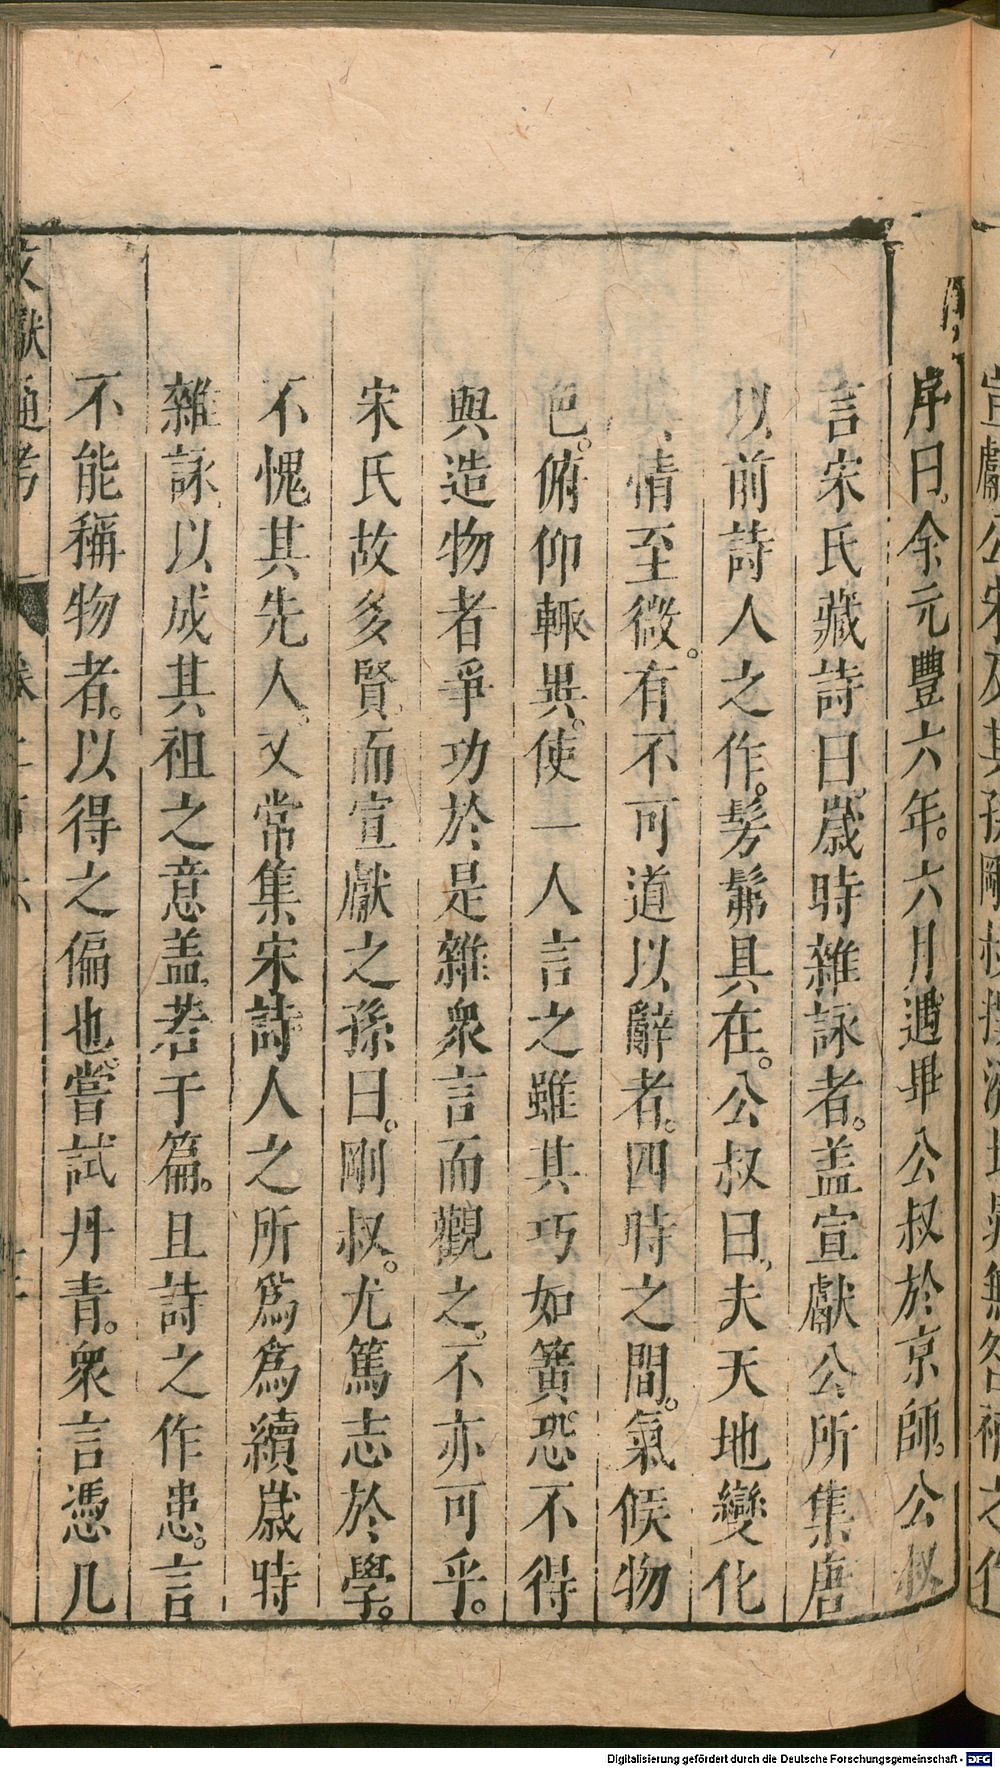 序曰余元豐六年六月遇畢公叔於京師公叔
言宋氏藏詩曰歲時雜詠者盖宣獻公所集唐
以前詩人之作髣髴具在公叔曰夫天地變化
情至微有不可道以辭者四時之間氣候物
色俯仰輙異使一人言之雖其巧如簧恐不得
與造物者爭功於是雜衆言而觀之不亦可乎
宋氏故多賢而宣獻之孫曰剛叔尤篤志於學
不愧其先人又常集宋詩人之所爲爲續歲時
雜詠以成其祖之意盖若干篇且詩之作患言
不能稱物者以得之偏也嘗試丹青衆言憑几
文獻通考
Digitalisierung gefördert durch die Deutsche Forschungsgemeinschaft - DFG